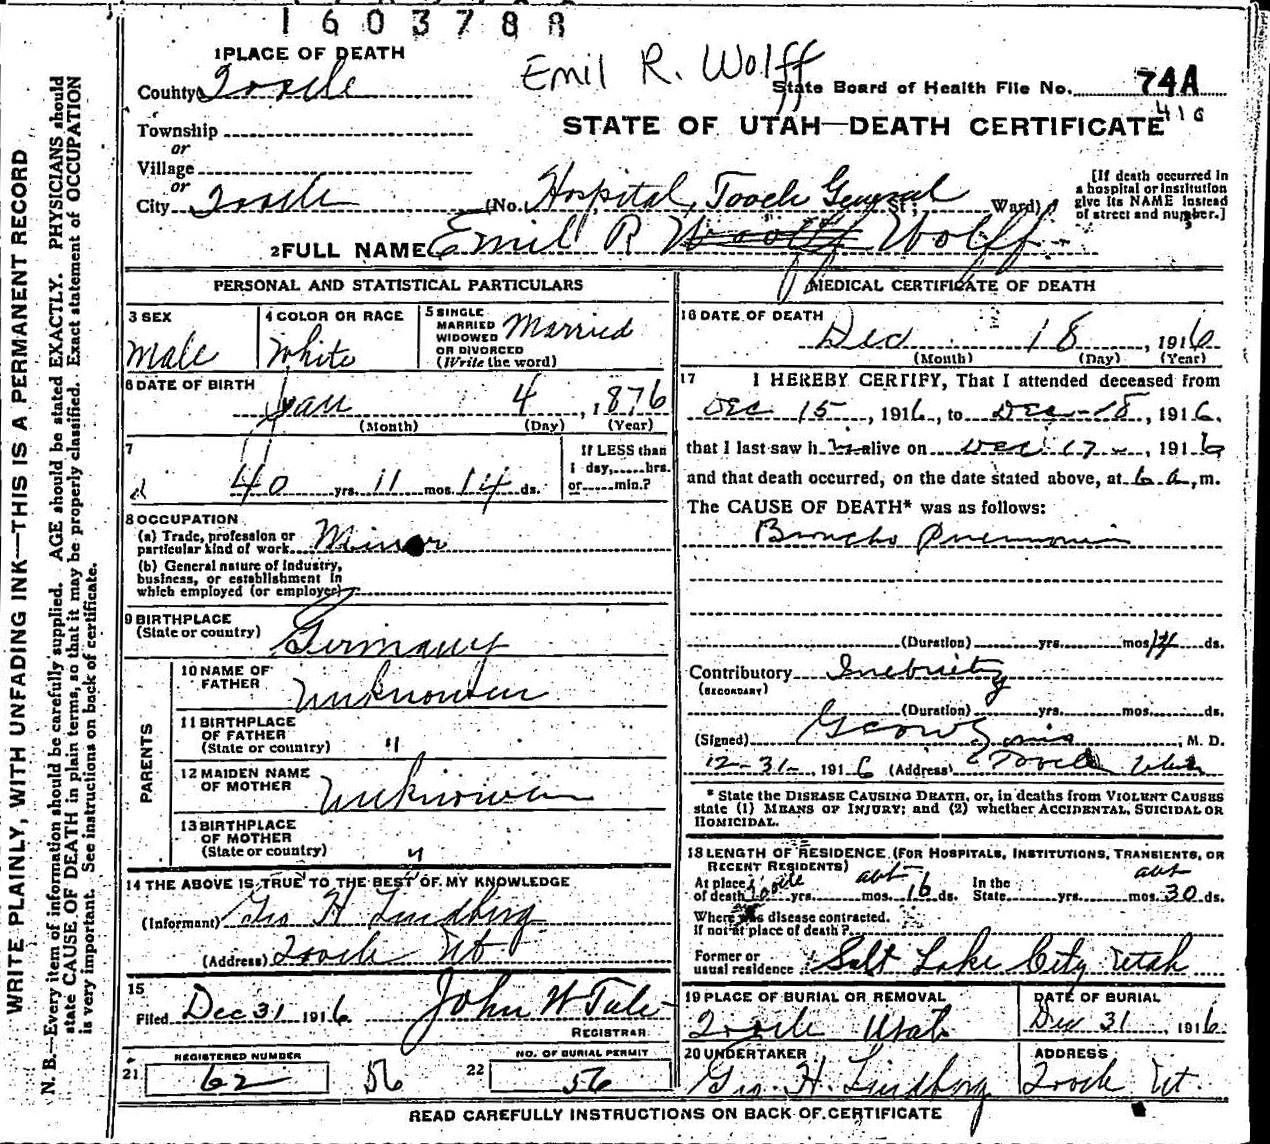 1603788
Emil R. Wolff
1 PLACE OF DEATH
County Tooele
State Board of Health File No. 74A
416
Township
or
Village
or
City Tooele
STATE OF UTAH—DEATH CERTIFICATE
(No. Hospital, Tooele General St; Ward)
[If death occurred in
a hospital or institution
give its NAME instead
of street and number.]
2 FULL NAME Emil R Woolff Wolff
PERSONAL AND STATISTICAL PARTICULARS
3 SEX
Male
4 COLOR OR RACE
White
5 SINGLE
MARRIED
WIDOWED
OR DIVORCED
(Write the word)
Married
6 DATE OF BIRTH
Jan 4, 1876
(Month) (Day) (Year)
7
40 yrs. 11 mos. 14 ds.
If LESS than
1 day, hrs.
or min.?
8 OCCUPATION
(a) Trade, profession or
particular kind of work Miner
(b) General nature of Industry,
business, or establishment in
which employed (or employer)
9 BIRTHPLACE
(State or country) Germany
PARENTS
10 NAME OF
FATHER Unknowen
11 BIRTHPLACE
OF FATHER
(State or country) "
12 MAIDEN NAME
OF MOTHER Unknowen
13 BIRTHPLACE
OF MOTHER
(State or country) "
14 THE ABOVE IS TRUE TO THE BEST OF MY KNOWLEDGE
(Informant) Geo H Lindberg
(Address) Tooele Ut
15
Filed Dec 31 1916 John W Tate
REGISTRAR
21 REGISTERED NUMBER
62 56
22 NO. OF BURIAL PERMIT
56
MEDICAL CERTIFICATE OF DEATH
16 DATE OF DEATH
Dec 18, 1916
(Month) (Day) (Year)
17 I HEREBY CERTIFY, That I attended deceased from
Dec 15, 1916, to Dec-18, 1916.
that I last saw h im alive on Dec 17, 1916
and that death occurred, on the date stated above, at 6 a, m.
The CAUSE OF DEATH* was as follows:
Broncho Pneumonia
(Duration) yrs. mos. 14 ds.
Contributory Inebriety
(SECONDARY)
(Duration) yrs. mos. ds.
(Signed) M. D.
12-31-, 1916 (Address) Tooele Utah
* State the DISEASE CAUSING DEATH, or, in deaths from VIOLENT CAUSES
state (1) MEANS OF INJURY; and (2) whether ACCIDENTAL, SUICIDAL OR
HOMICIDAL.
18 LENGTH OF RESIDENCE (FOR HOSPITALS, INSTITUTIONS, TRANSIENTS, OR
RECENT RESIDENTS)
At place Tooele abt In the abt
of death yrs. mos. 16 ds. State yrs. mos. 30 ds.
Where was disease contracted.
If not at place of death?
Former or
usual residence Salt Lake City Utah
19 PLACE OF BURIAL OR REMOVAL
Tooele Utah
DATE OF BURIAL
Dec 31, 1916.
20 UNDERTAKER
Geo. H. Lindberg
ADDRESS
Tooele Ut.
READ CAREFULLY INSTRUCTIONS ON BACK OF CERTIFICATE
WRITE PLAINLY, WITH UNFADING INK—THIS IS A PERMANENT RECORD
N. B.—Every item of information should be carefully supplied. AGE should be stated EXACTLY. PHYSICIANS should
state CAUSE OF DEATH in plain terms, so that it may be properly classified. Exact statement of OCCUPATION
is very important. See instructions on back of certificate.